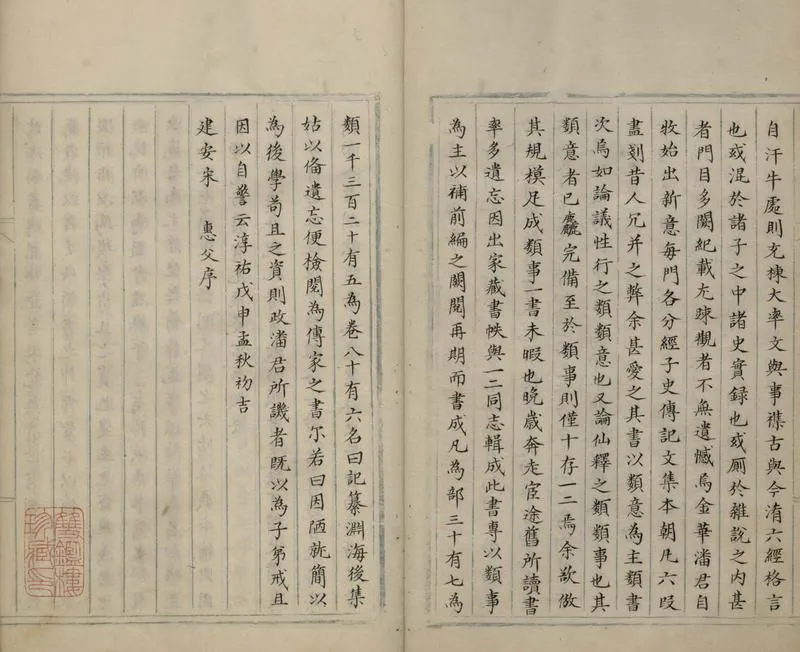 自汗牛處則充棟大率文與事襍古與今淆六經格言
也或混於諸子之中諸史實録也或厠於雜說之内甚
者門目多闕紀載尤踈觀者不無遺憾焉金華潘君自
牧始出新意每門各分經子史傳記文集本朝凡六段
盡刻昔人冗并之弊余甚愛之其書以類意為主類書
次焉如論議性行之類類意也又論仙釋之類類事也其
類意者已麤完備至於類事則僅十存一二焉余欲倣
其規模足成類事一書未暇也晚嵗奔走宦途舊所讀書
率多遺忘因出家藏書帙與一二同志輯成此書專以類事
為主以補前編之闕閱再期而書成凡為部三十有七為
類一千三百二十有五為卷八十有六名曰記纂淵海後集
姑以俻遺忘便檢閱為傳家之書尔若曰因陋就簡以
為後學苟且之資則政潘君所譏者既以為子弟戒且
因以自警云淳祐戊申孟秋初吉
建安宋　惠父序
雙鑑樓
珍藏印